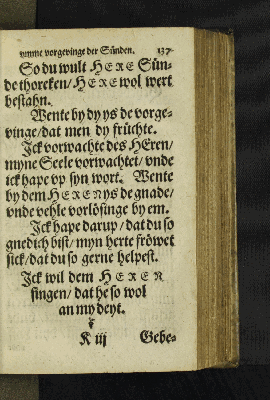 vmme vorgevinge der Sünden. 137
So du wult HERE Sün-
de thoreken/ HERE wol wert
bestahn.
Wente by dy ys de vorge-
vinge/ dat men dy früchte.
Ick vorwachte des HEren/
myne Seele vorwachtet/ vnde
ick hape vp syn wort. Wente
by dem HERENys de gnade/
vnde vehle vorlösinge by em.
Ick hape darup/ dat du so
gnedich bist/ myn herte fröwet
sick/ dat du so gerne helpest.
Ick wil dem HEREN
singen/ dat he so wol
an my deyt.
K iij Gebe-